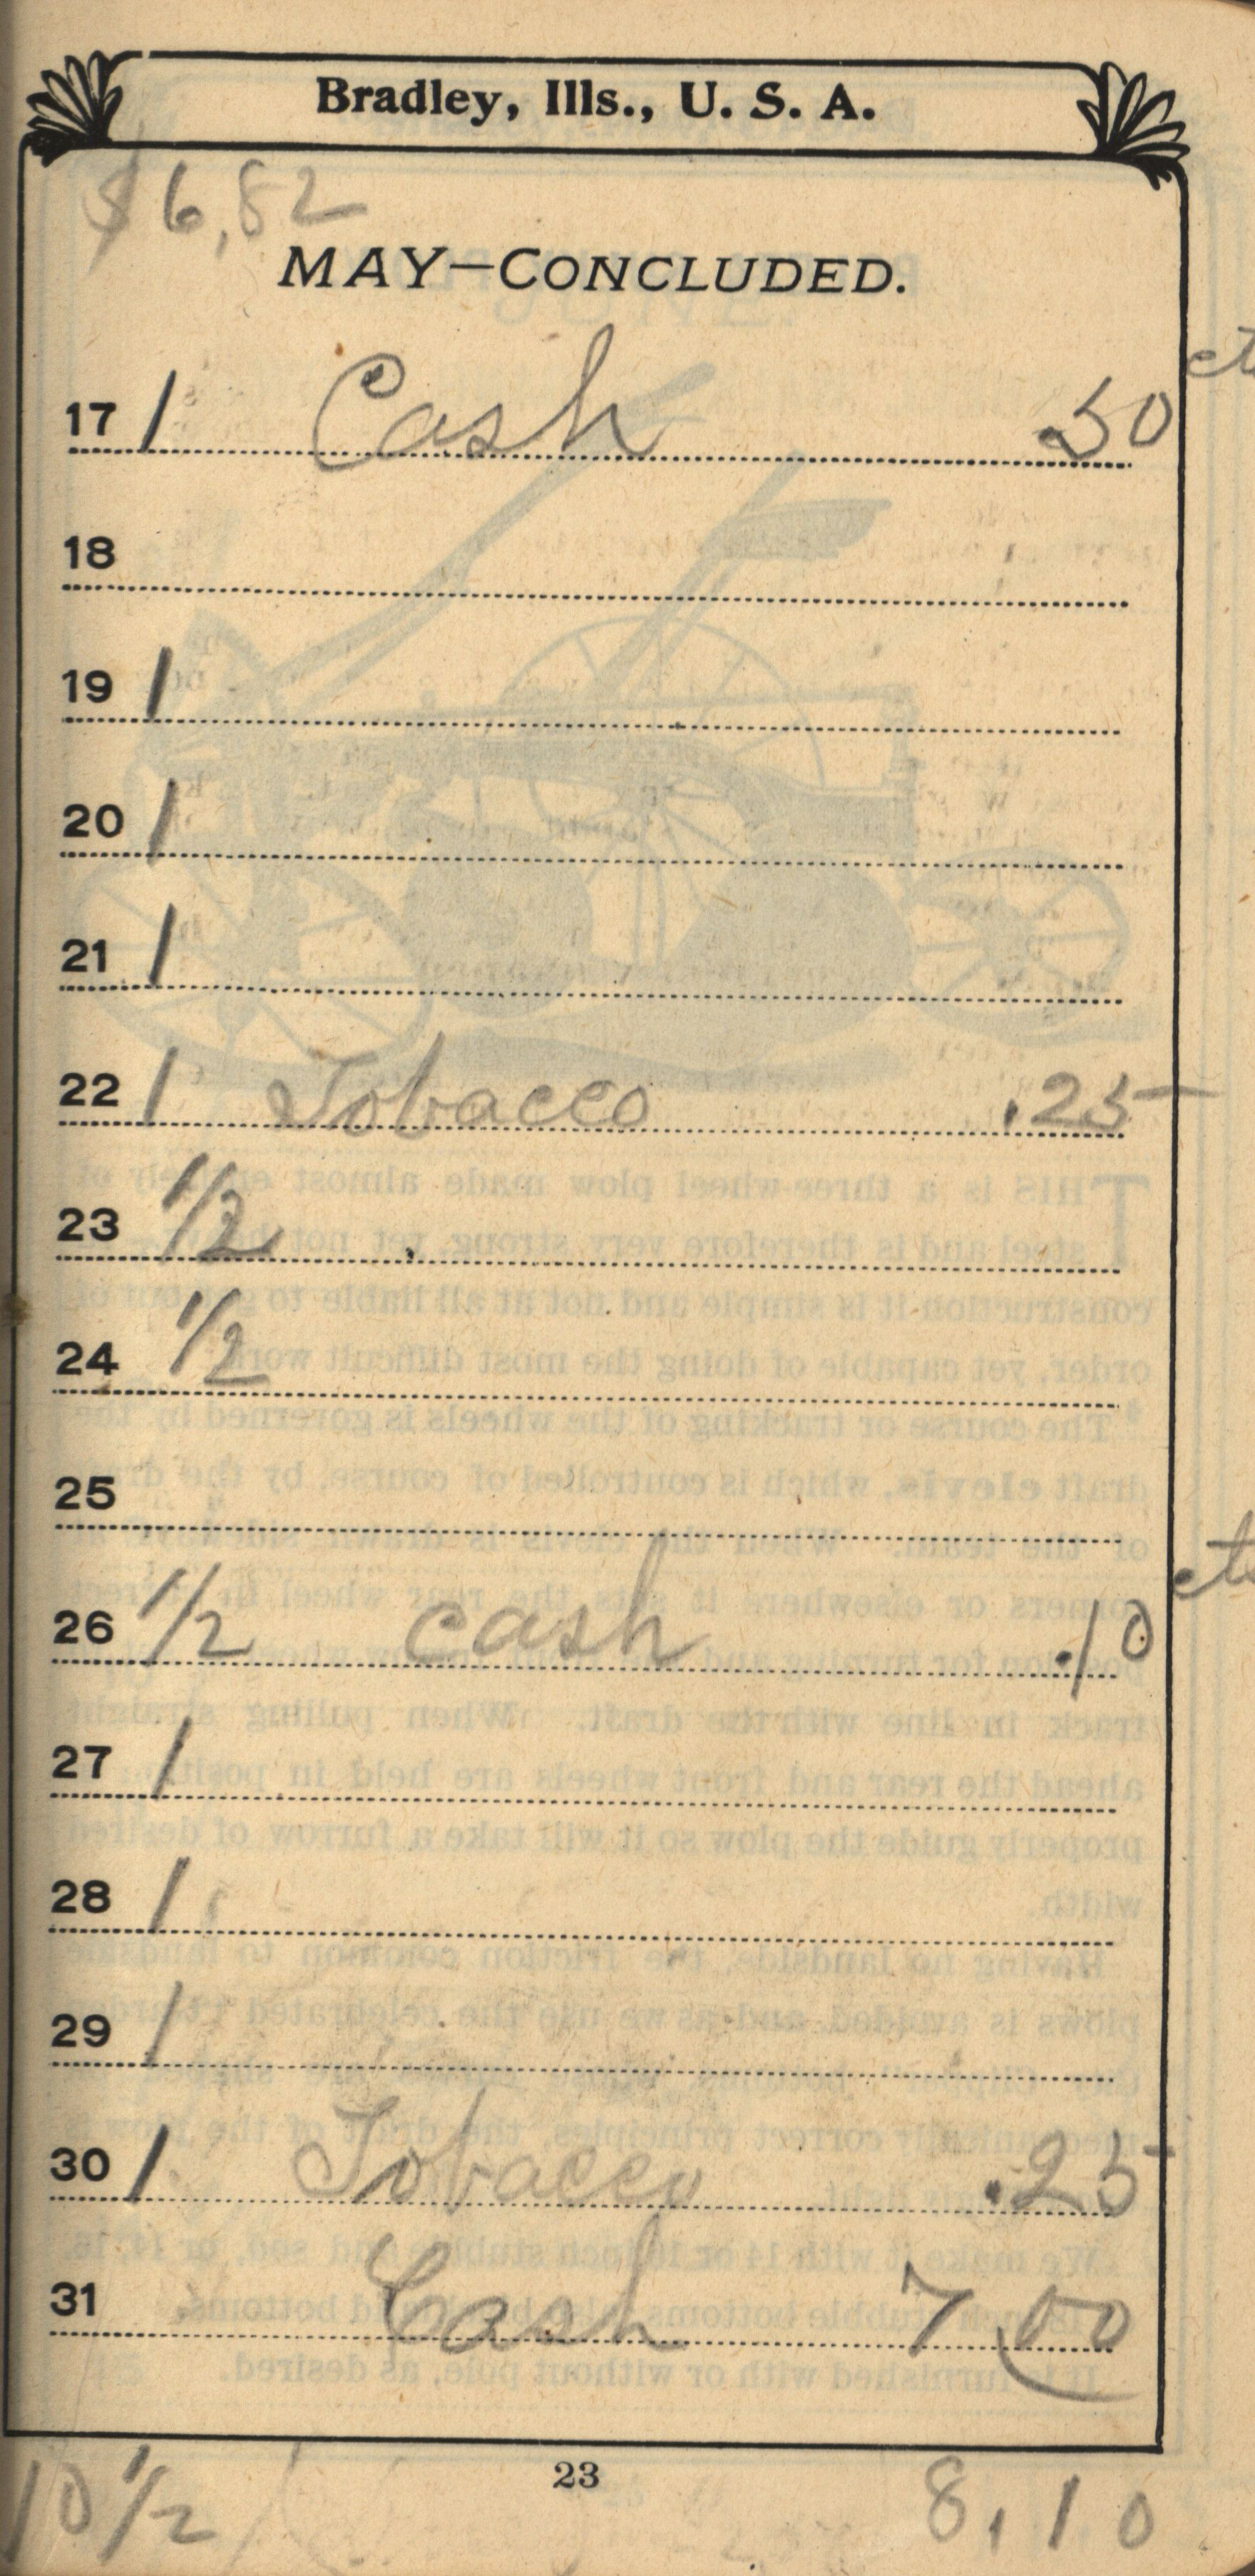 Bradley, Ills., U. S. A.
$6,82
MAY—CONCLUDED.
17 1 Cash .50 cts
18
19 1
20 1
21 1
22 1 Tobacco .25
23 1/2
24 1/2
25
26 1/2 Cash .10 cts
27 1
28 1
29 1
30 1 Tobacco .25
31 Cash 7,00
23
10 1/2 8,10